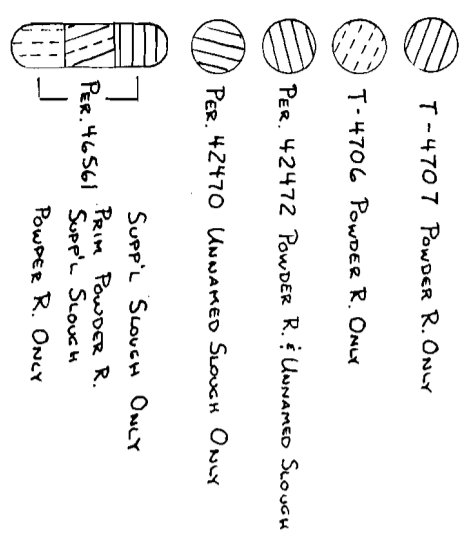 T-4707 POWDER R. ONLY
T-4706 POWDER R. ONLY
PER. 42472 POWDER R. & UNNAMED SLOUGH
PER. 42470 UNNAMED SLOUGH ONLY
PER. 46561
SUPP'L SLOUGH ONLY
PRIM POWDER R.
SUPP'L SLOUGH
POWDER R. ONLY